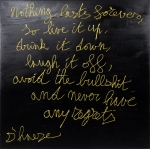 Nothing lasts forever,
so live it up,
drink it down,
laugh it off,
avoid the bullshit
and never have
any regrets